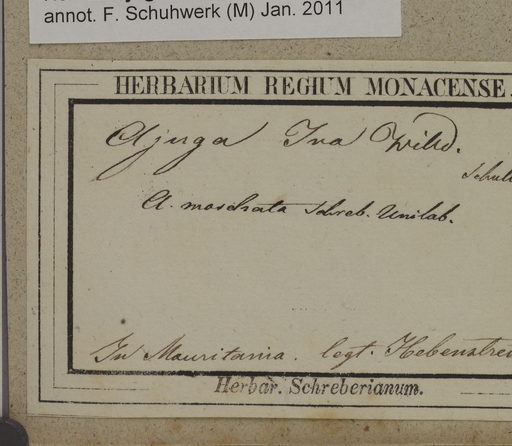 annot. F. Schuhwerk (M) Jan. 2011
HERBARIUM REGIUM MONACENSE.
Ajuga Iva Willd.
A. moschata Schreb. Unilab.
In Mauritania. legt. Hebenstrei
Herbar. Schreberianum.